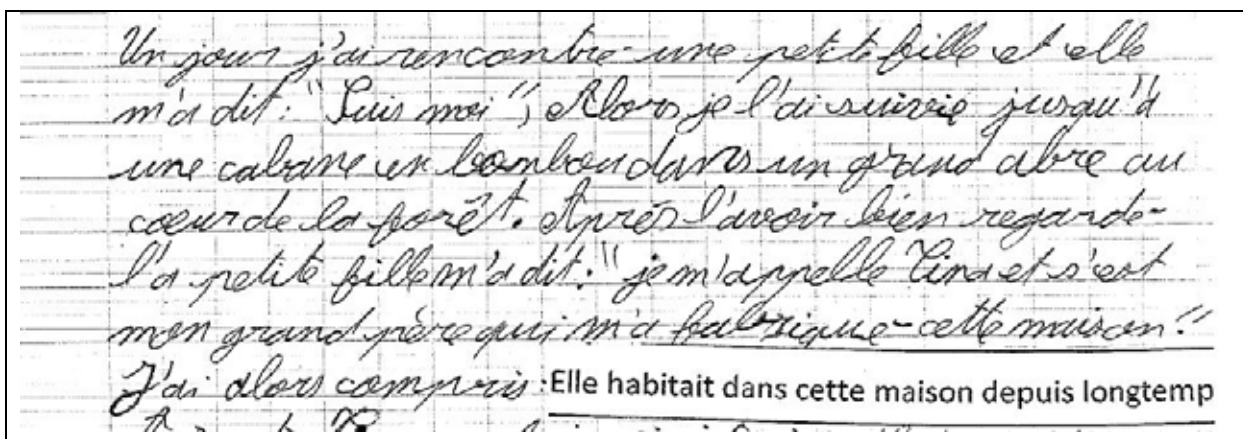 Un jour j'ai rencontré une petite fille et elle
m'a dit : "Suis moi", Alors je l'ai suivie jusqu'à
une cabane en bambou dans un grand abre au
coeur de la forêt. Après l'avoir bien regardé
l'a petite fille m'a dit : "je m'appelle Tina et s'est
mon grand père qui m'a fabriqué cette maison."
J'ai alors compris : Elle habitait dans cette maison depuis longtemp